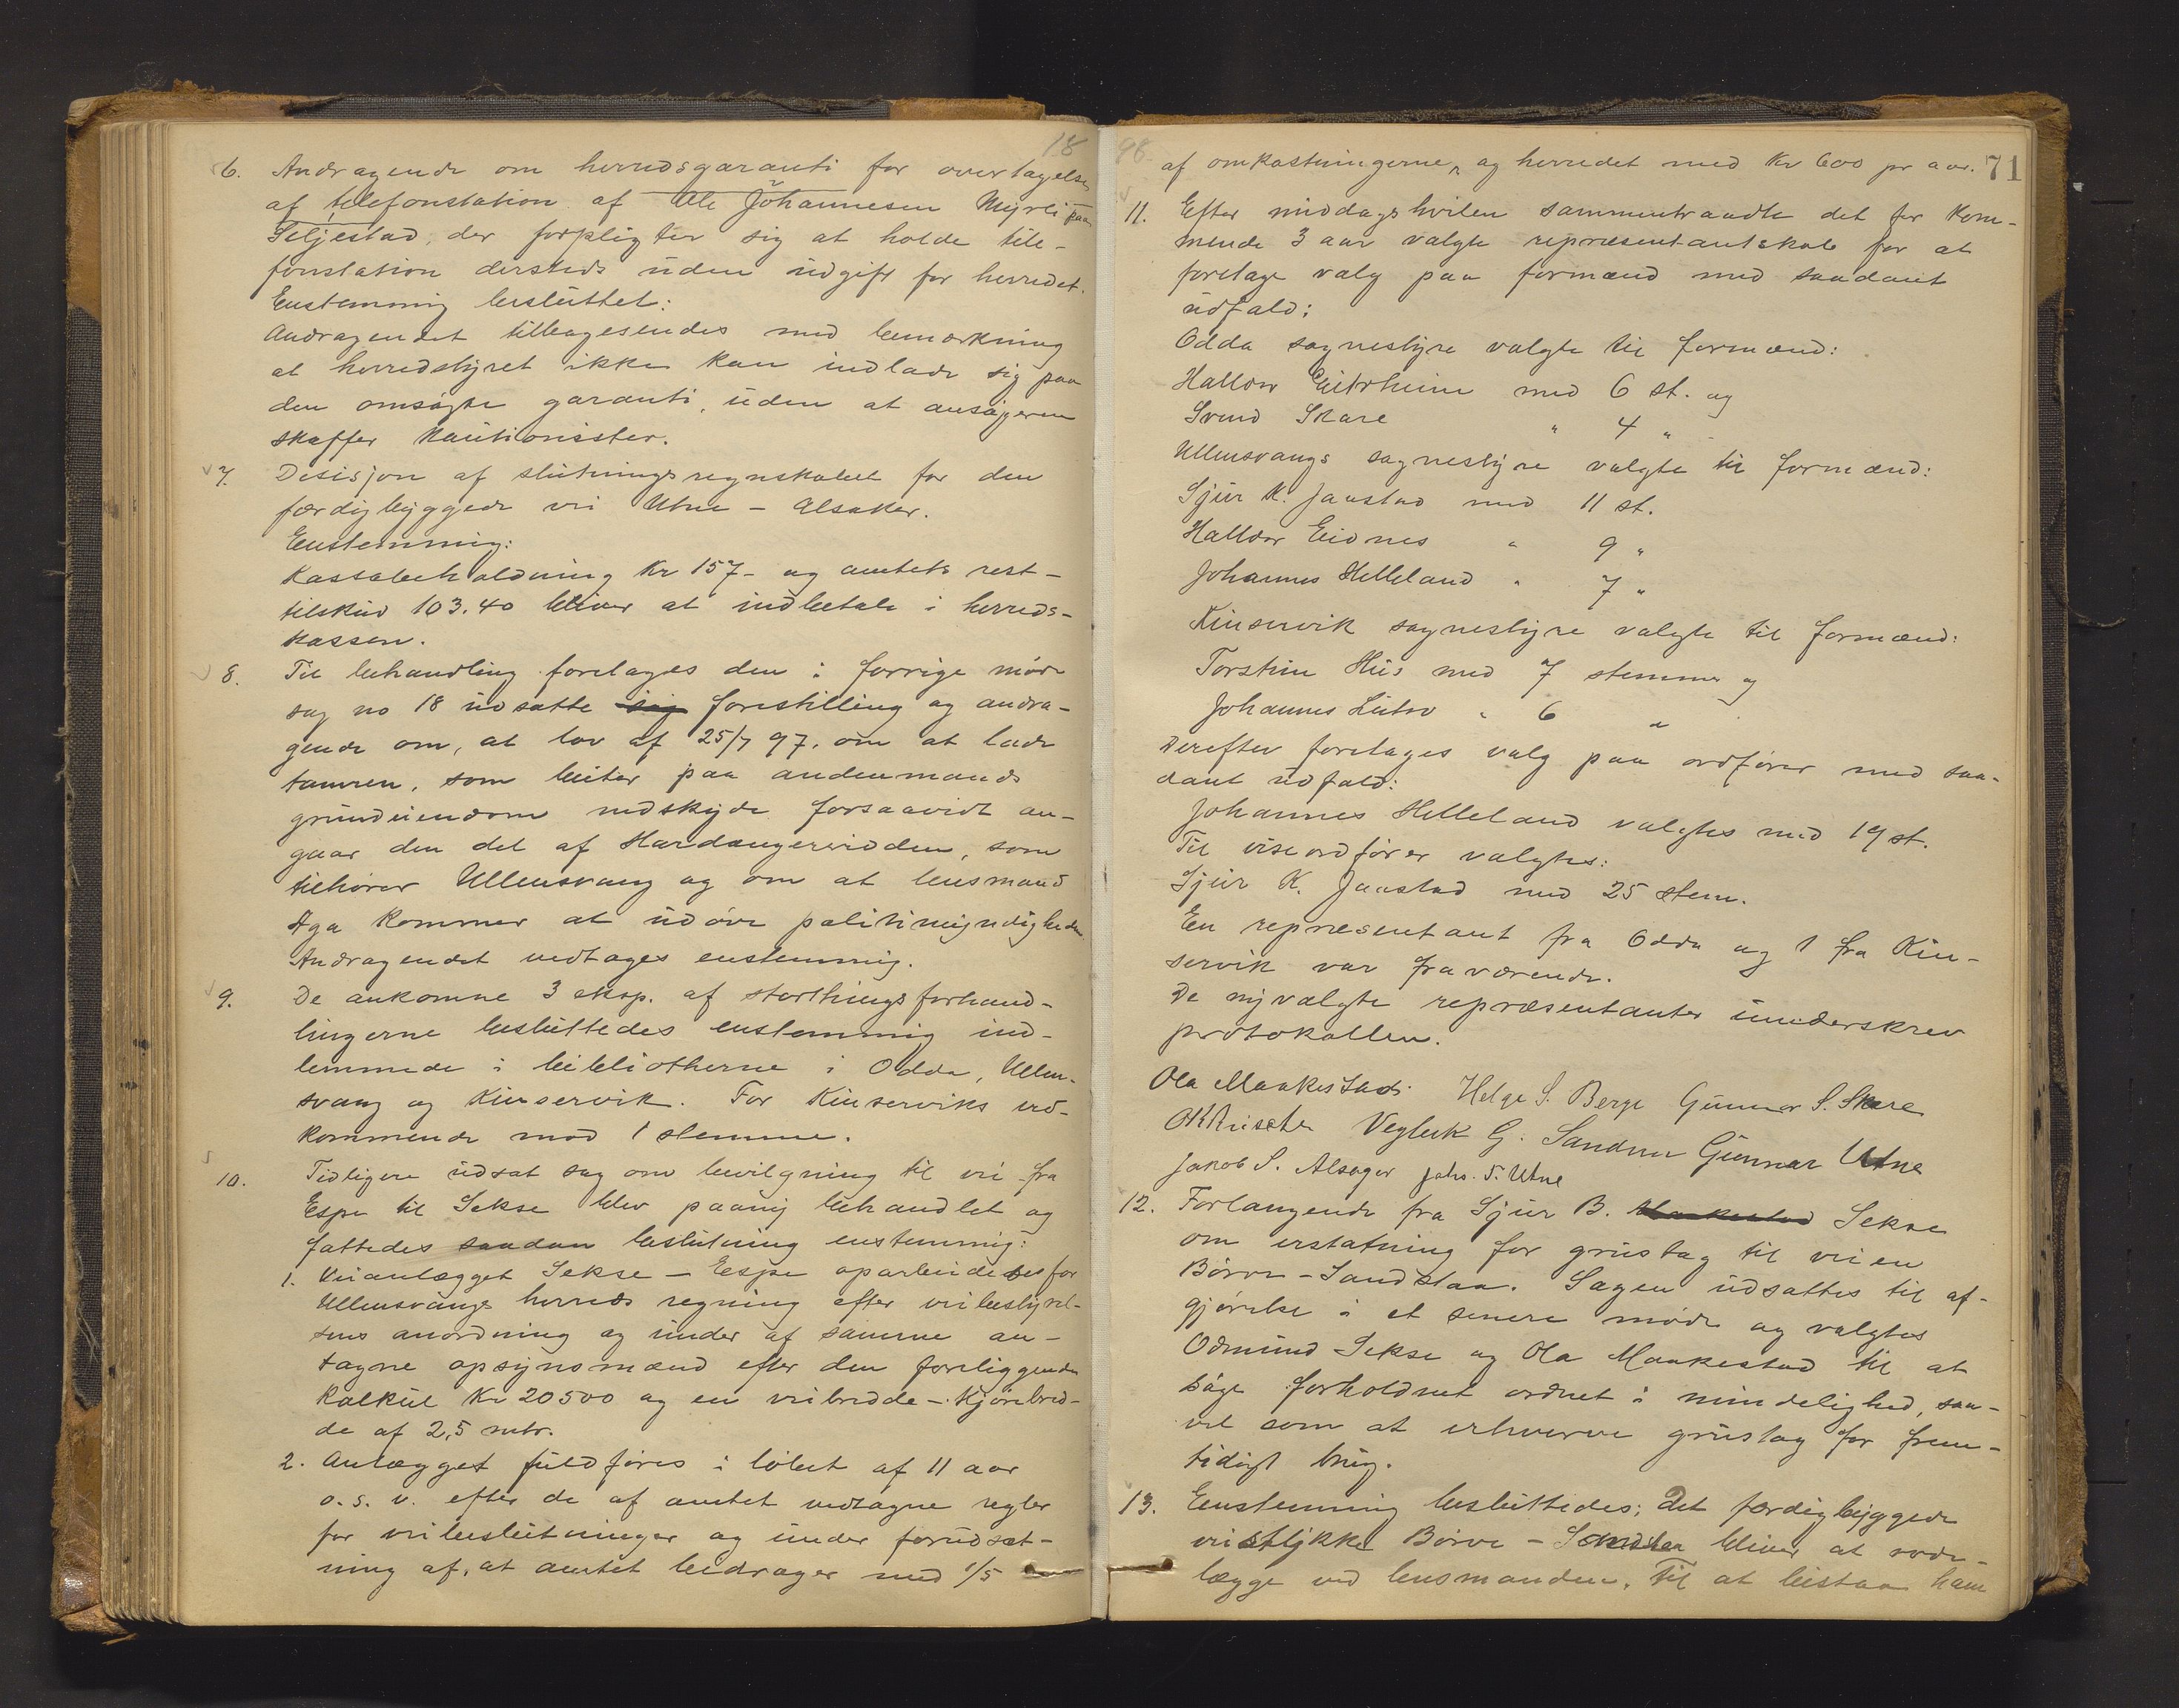 18
6. Andragende om herredsgaranti for overtagelse
af telefonstation af Ole Johannesen Myrli paa
Seljestad, der forpligter sig at holde tele-
fonstation dersteds uden udgift for herredet.
Enstemmig besluttet:
Andragendet tilbagesendes med bemærkning
at herredstyret ikke kan indlade sig paa
den omsøgte garanti, uden at ansøgeren
skaffer kautionister.
7. Desisjon af slutningsregnskabet for den
færdigbyggede vei Utne - Alsaker.
Enstemmig:
Kassabeholdning Kr 157- og amtets rest-
tilskud 103.40 bliver at indbetale i herreds-
kassen.
8. Til behandling foretages den i forrige møde
sag no 18 udsatte sig forestilling og andra-
gende om, at lov af 25/7 97. om at lade
tamren, som beiter paa andenmands
grundeiendom nedskyde forsaavidt an-
gaar den del af Hardangervidden, som
tilhører Ullensvang og om at lensmand
Aga kommer at udøve politimyndigheden.
Andragendet vedtages enstemmig.
9. De ankomne 3 eksp. af storthingsforhand-
lingerne besluttedes enstemmig ind-
lemmede i bibliotherne i Odda, Ullen-
svang og Kinservik. For Kinserviks ved-
kommende mod 1 stemme.
10. Tidligere udsat sag om bevilgning til vei fra
Espe til Sekse blev paany behandlet og
fattedes saadan beslutning enstemmig:
1. Veianlægget Sekse - Espe oparbeidedes for
Ullensvangs herreds regning efter veibestyrel-
sens anordning og under af samme an-
tagne opsynsmænd efter den foreliggende
kalkul Kr 20500 og en veibredde - kjørebred-
de af 2,5 mtr.
2. Anlægget fuldføres i løbet af 11 aar
o.s.v. efter de af amtet vedtagne regler
for veibeslutninger og under forudsæt-
ning af, at amtet bidrager med 1/5
98.
71
af omkostningerne, og herredet med Kr 600 pr aar.
11. Efter middagshvilen sammentraadte det for kom-
mende 3 aar valgte repræsentantskab for at
foretage valg paa formænd med saadant
udfald:
Odda sognestyre valgte til formænd:
Halldor Eitrheim med 6 st. og
Svend Skare " 4 "
Ullensvangs sognestyre valgte til formænd:
Sjur K. Jaastad med 11 st.
Halldor Eidnes " 9 "
Johannes Helleland " 7 "
Kinservik sognestyre valgte til formænd:
Torstein Hus med 7 stemmer og
Johannes Lutro " 6 "
Derefter foretages valg paa ordfører med saa-
dant udfald:
Johannes Helleland valgtes med 19 st.
Til viseordfører valgtes:
Sjur K. Jaastad med 25 stem.
En repræsentant fra Odda og 1 fra Kin-
servik var fraværende.
De nyvalgte repræsentanter underskrev
protokollen.
Ola Maakestad. Helge S. Berge Gunnar S. Skare
Vegleik G. Sandven Gunnar Utne
Jakob S. Alsager Johs. T. Utne
12. Forlangende fra Sjur B. Maakestad Sekse
om erstatning for grustag til veien
Børve - Sandstaa. Sagen udsattes til af-
gjørelse i et senere møde og valgtes
Odmund Sekse og Ola Maakestad til at
søge forholdnet ordnet i mindelighed, saa-
vel som at erhverve grustag for frem-
tidigt brug.
13. Enstemmig besluttedes: Det færdigbyggede
veistykke Børve - bliver at rode-
lægge ved lensmanden. Til at bistaa ham